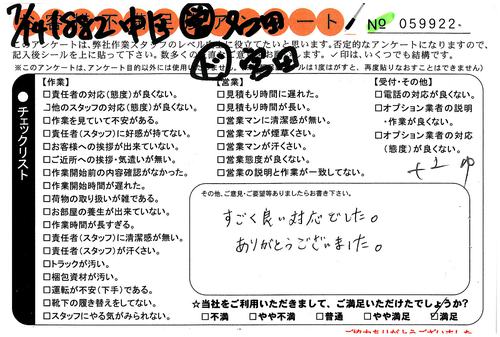 7/14 1882
アンケート
№ 059922
このアンケートは、弊社作業スタッフのレベル向上に役立てたいと思います。否定的なアンケートになりますので、
記入後シールを上に貼って下さい。
✓印は、いくつでも結構です。
チェックリスト
【作業】
□責任者の対応(態度)が良くない。
□他のスタッフの対応(態度)が良くない。
□作業を見ていて不安がある。
□責任者(スタッフ)に好感が持てない。
□お客様への挨拶が出来ていない。
□ご近所への挨拶・気遣いが無い。
□作業開始前の内容確認がなかった。
□作業開始時間が遅れた。
□荷物の取り扱いが雑である。
□お部屋の養生が出来ていない。
□作業時間が長すぎる。
□責任者(スタッフ)に清潔感が無い。
□責任者(スタッフ)が汗くさい。
□トラックが汚い。
□梱包資材が汚い。
□運転が不安(下手)である。
□靴下の履き替えをしてない。
□スタッフにやる気がみられない。
【営業】
□見積もり時間に遅れた。
□見積もり時間が長い。
□営業マンに清潔感が無い。
□営業マンが煙草くさい。
□営業マンが汗くさい。
□営業態度が良くない。
□営業の説明と作業が一致してない。
【受付・その他】
□電話の対応が良くない。
□オプション業者の説明
・作業が良くない。
□オプション業者の対応
(態度)が良くない。
その他、ご意見・ご要望等ありましたらお書き下さい。
すごく良い対応でした。
ありがとうございました。
☆当社をご利用いただきまして、ご満足いただけたでしょうか?
□不満 □やや不満 □普通 □やや満足 ☑満足
ご協力ありがとうございました